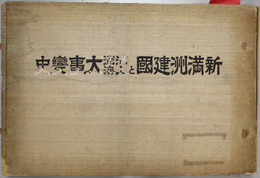 新満洲建國と大事變史